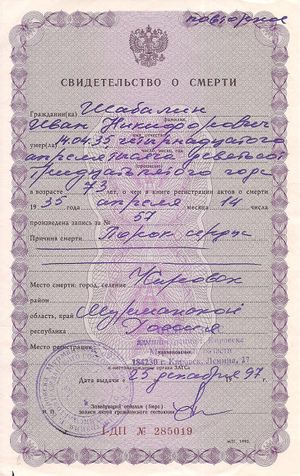 повторное
СВИДЕТЕЛЬСТВО О СМЕРТИ
Гражданин(ка) Шабалин
фамилия,
Иван Никифорович
имя, отчество
умер(ла) 14.04.35 четырнадцатого
число, месяц, год
апреля тысяча девятьсот
тридцать пятого года
в возрасте 73 лет, о чем в книге регистрации актов о смерти
19 35 года апреля месяца 14 числа
произведена запись за № 57
Причина смерти Порок сердца
Место смерти: город, селение Кировск
район
область, край Мурманской
республика Россия
Место регистрации:
администрация г. Кировска
Мурманской области
184230 г. Кировск, Ленина, 17
наименование органа ЗАГСа
Дата выдачи « 25 декабря 19 97 г.
М. П.
Заведующий отделом (бюро)
записи актов гражданского состояния
I-ДП № 285019